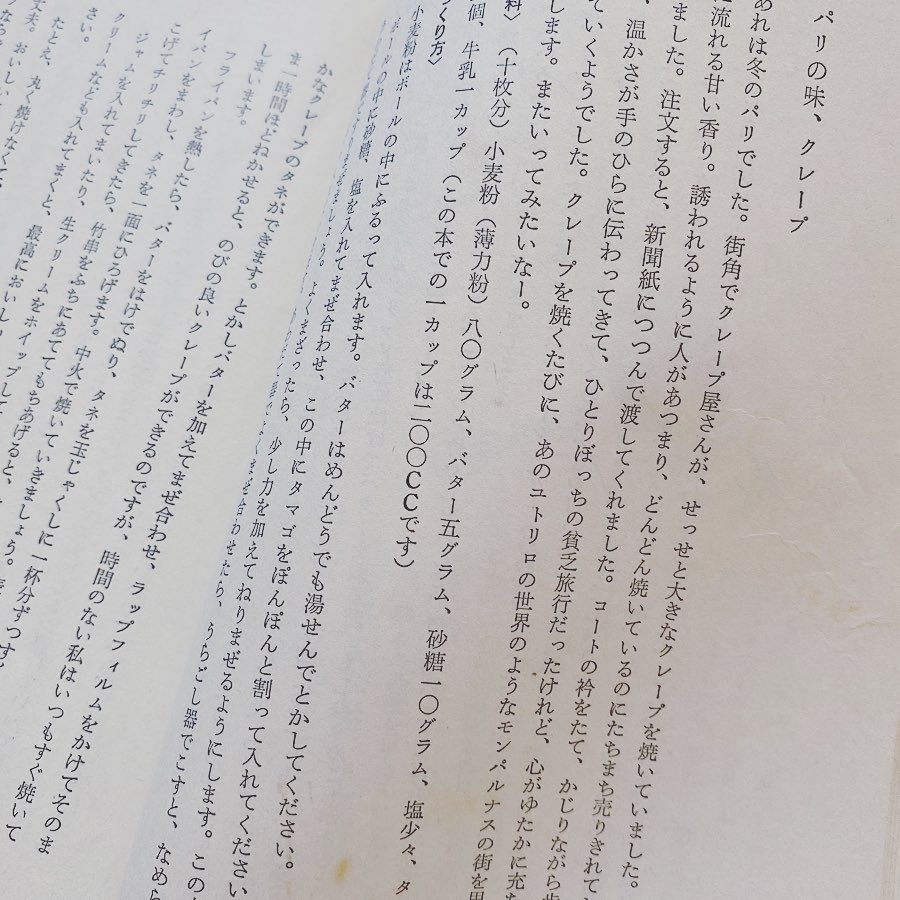 パリの味、クレープ
あれは冬のパリでした。街角でクレープ屋さんが、せっせと大きなクレープを焼いていました。
に流れる甘い香り。誘われるように人があつまり、どんどん焼いているのにたちまち売りきれてい
ました。注文すると、新聞紙につつんで渡してくれました。コートの衿をたて、かじりながら歩
、温かさが手のひらに伝わってきて、ひとりぼっちの貧乏旅行だったけれど、心がゆたかに充た
ていくようでした。クレープを焼くたびに、あのユトリロの世界のようなモンパルナスの街を思
します。またいってみたいなー。
料〉（十枚分）小麦粉（薄力粉）八〇グラム、バター五グラム、砂糖一〇グラム、塩少々、タ
個、牛乳一カップ（この本での一カップは二〇〇CCです）
くり方〉
小麦粉はボールの中にふるって入れます。バターはめんどうでも湯せんでとかしてください。
ボールの中に砂糖、塩を入れてまぜ合わせ、この中にタマゴをぽんぽんと割って入れてください
まぜましょう。よくまざったら、少し力を加えてねりまぜるようにします。この
よくまぜ合わせたら、うらごし器でこすと、なめら
かなクレープのタネができます。とかしバターを加えてまぜ合わせ、ラップフィルムをかけてそのま
ま一時間ほどねかせると、のびの良いクレープができるのですが、時間のない私はいつもすぐ焼いて
しまいます。
フライパンを熱したら、バターをはけでぬり、タネを玉じゃくしに一杯分ずつ
イパンをまわし、タネを一面にひろげます。中火で焼いていきましょう。
こげてチリチリしてきたら、竹串をふちにあててもちあげると、
ジャムを入れてまいたり、生クリームをホイップして
クリームなども入れてまくと、最高においし
さい。
たとえ、丸く焼けなくて
丈夫。おいしい